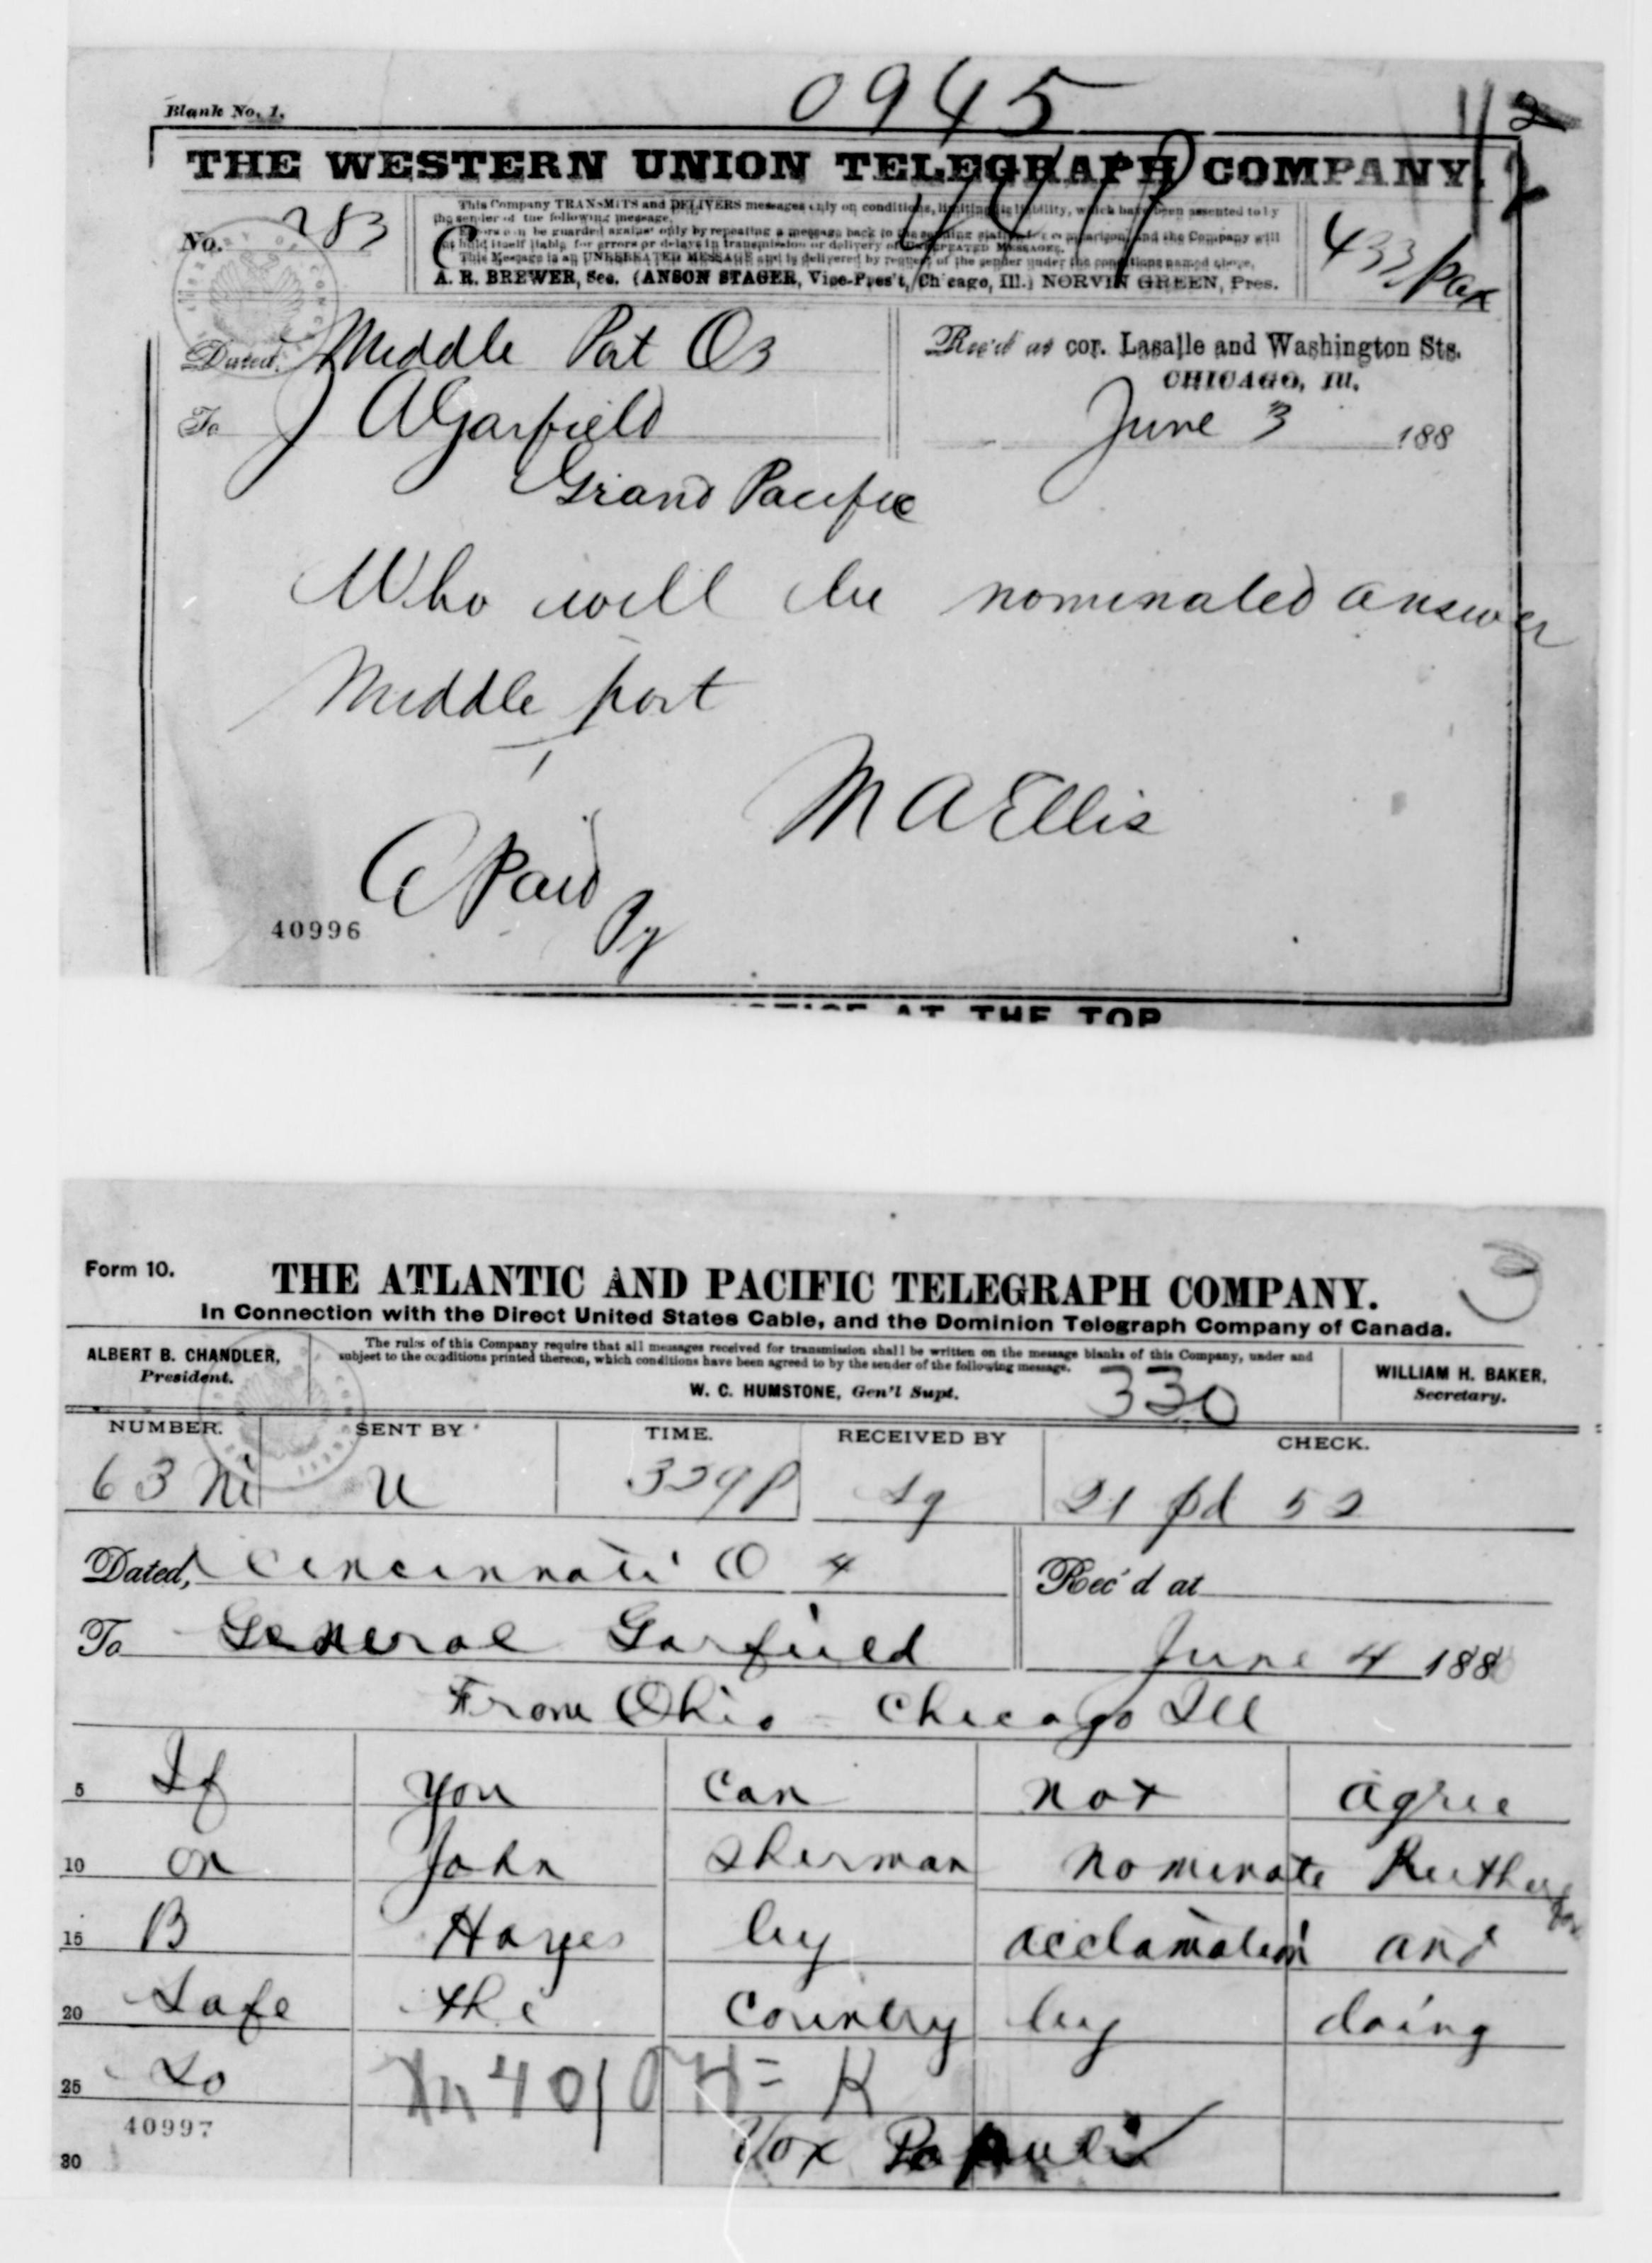 0945
Blank No. 1.
THE WESTERN UNION TELEGRAPH COMPANY.
No. 283
This Company TRANSMITS and DELIVERS messages only on conditions, limiting its liability, which have been assented to by
the sender of the following message.
Errors can be guarded against only by repeating a message back to the sending station for comparison, and the Company will
not hold itself liable for errors or delays in transmission or delivery of UNREPEATED MESSAGES.
This Message is an UNREPEATED MESSAGE and is delivered by request of the sender under the conditions named above.
A. R. BREWER, Sec. (ANSON STAGER, Vice-Pres't, Chicago, Ill.) NORVIN GREEN, Pres.
433 pax
Dated Middle Port O 3
Rec'd at cor. Lasalle and Washington Sts.
CHICAGO, Ill.
To J A Garfield
June 3 188
Grand Pacific
Who will be nominated answer
Middle port
M A Ellis
Paid
40996
AT THE TOP
Form 10.
THE ATLANTIC AND PACIFIC TELEGRAPH COMPANY.
3
In Connection with the Direct United States Cable, and the Dominion Telegraph Company of Canada.
ALBERT B. CHANDLER,
President.
The rules of this Company require that all messages received for transmission shall be written on the message blanks of this Company, under and
subject to the conditions printed thereon, which conditions have been agreed to by the sender of the following message.
W. C. HUMSTONE, Gen'l Supt.
330
WILLIAM H. BAKER,
Secretary.
NUMBER. SENT BY TIME. RECEIVED BY CHECK.
63 Ni U 329P Sg 21 pd 52
Dated, Cincinnati O 4
Rec'd at
To General Garfield
June 4 1880
From Ohio - Chicago Ill
5 If you can not agree
10 on John Sherman nominate Rutherfor
15 B Hayes by acclamation and
20 Safe the Country by doing
25 So
40997
Vox Populi
30